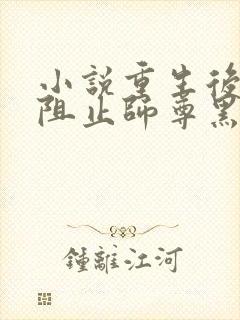 小說重生後
阻止師尊黑
鍾離江河